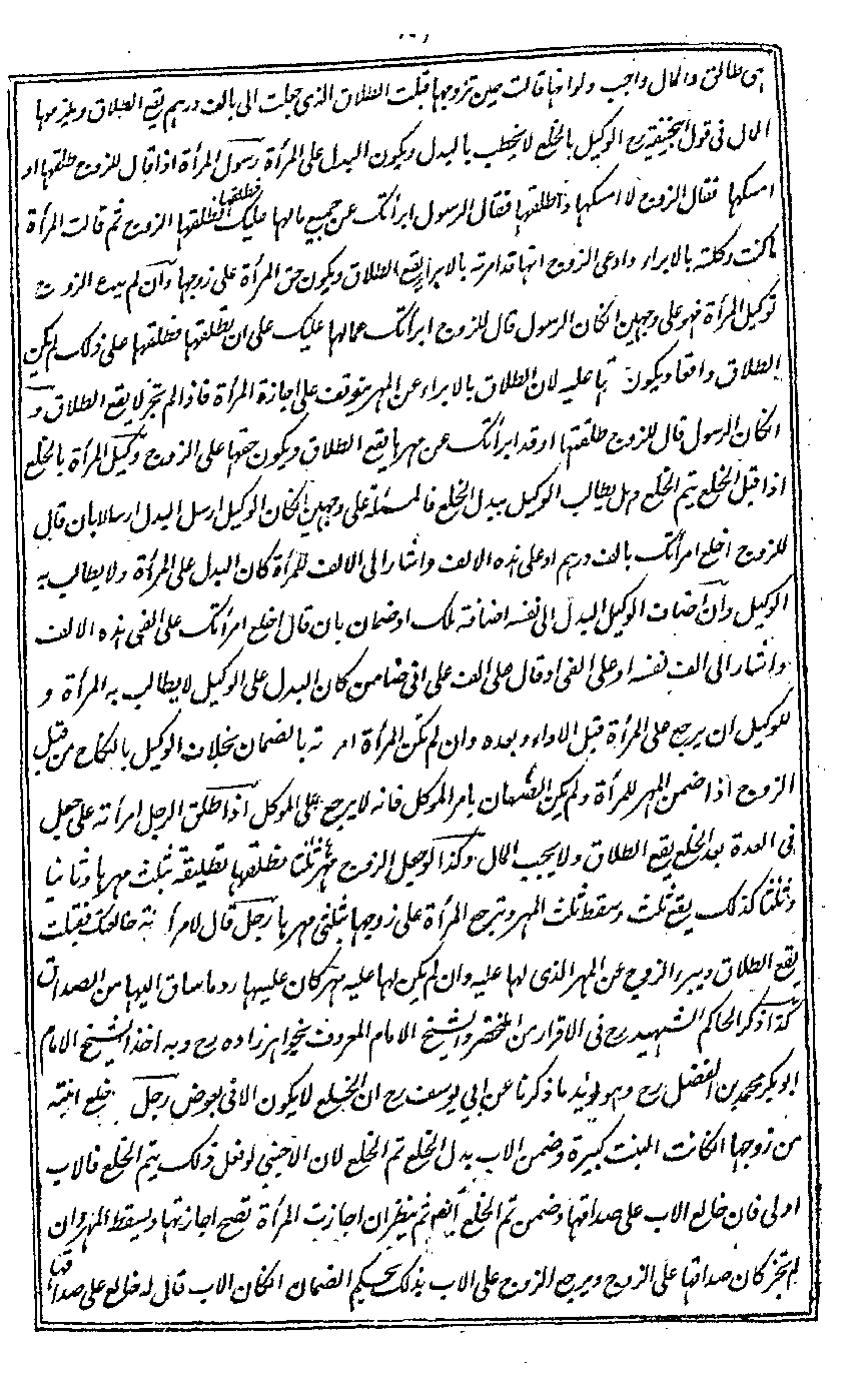 هى طالق والمال واجب ولو انها قالت حين تزوجها قبلت الطلاق الذى جعلت الى بالف درهم يقع الطلاق ويلزمها
المال فى قول ابيحنيفة رح الوكيل بالخلع لا يخطب بالبدل ويكون البدل على المرأة رسول المرأة اذا قال للزوج طلقها او
امسكها فقال الزوج لا امسكها واطلقها فقال الرسول ابرأتك عن جميع مالها عليك فطلقها فطلقها الزوج ثم قالت المرأة
ما كنت وكلته بالابراء وادعى الزوج انها قد امرته بالابراء يقع الطلاق ويكون حق المرأة على زوجها وان لم يدع الزوج
توكيل المرأة فهو على وجهين انكان الرسول قال للزوج ابرأتك عمالها عليك على ان تطلقها فطلقها على ذلك لم يكن
الطلاق واقعا ويكون عليه لان الطلاق بالابراء عن المهر يتوقف على اجازة المرأة فاذا لم تجز لا يقع الطلاق و
انكان الرسول قال للزوج طلقتها وقد ابرأتك عن مهرها يقع الطلاق ويكون حقها على الزوج وكيل المرأة بالخلع
اذا قبل الخلع يتم الخلع وهل يطالب الوكيل ببدل الخلع فالمسئلة على وجهين انكان الوكيل ارسل البدل ارسالا بان قال
للزوج اخلع امرأتك بالف درهم او على هذه الالف واشار الى الالف للمرأة كان البدل على المرأة ولا يطالب به
الوكيل وان اضاف الوكيل البدل الى نفسه اضافة ملك او ضمان بان قال اخلع امرأتك على الفى هذه الالف
واشار الى الف نفسه او على الفى او قال على الف على انى ضامن كان البدل على الوكيل لا يطالب به المرأة و
للوكيل ان يرجع على المرأة قبل الاداء وبعده وان لم تكن المرأة امرته بالضمان بخلاف الوكيل بالنكاح من قبل
الزوج اذا ضمن المهر للمرأة ولم يكن الضمان بامر الموكل فانه لا يرجع على الموكل اذا طلق الرجل امرأته على جعل
فى العدة بعد الخلع يقع الطلاق ولا يجب المال وكذا لو جعل الزوج فطلقها تطليقة بثلث مهرها وثانيا
وثلثا كذلك يقع ثلث وسقط ثلث المهر وترجع المرأة على زوجها بثلثى مهرها رجل قال لامرأته خالعتك فقبلت
يقع الطلاق ويبرء الزوج عن المهر الذى لها عليه وان لم يكن لها عليه مهر كان عليها رد ما ساق اليها من الصداق
كذا ذكر الحاكم الشهيد رح فى الاقرار من المختصر والشيخ الامام المعروف بخواهرزاده رح وبه اخذ الشيخ الامام
ابو بكر محمد بن الفضل رح وهو يؤيد ما ذكرنا عن ابى يوسف رح ان الخلع لا يكون الا فى بعوض رجل خلع ابنته
من زوجها انكانت البنت كبيرة وضمن الاب بدل الخلع تم الخلع لان الاجنبى لو فعل ذلك يتم الخلع فالاب
اولى فان خالع الاب على صداقها وضمن تم الخلع ايضا ثم ينظر ان اجازت المرأة تصح اجازتها ويسقط المهر وان
لم تجز كان صداقها على الزوج ويرجع الزوج على الاب بذلك بحكم الضمان انكان الاب قال له خالع على صداقها